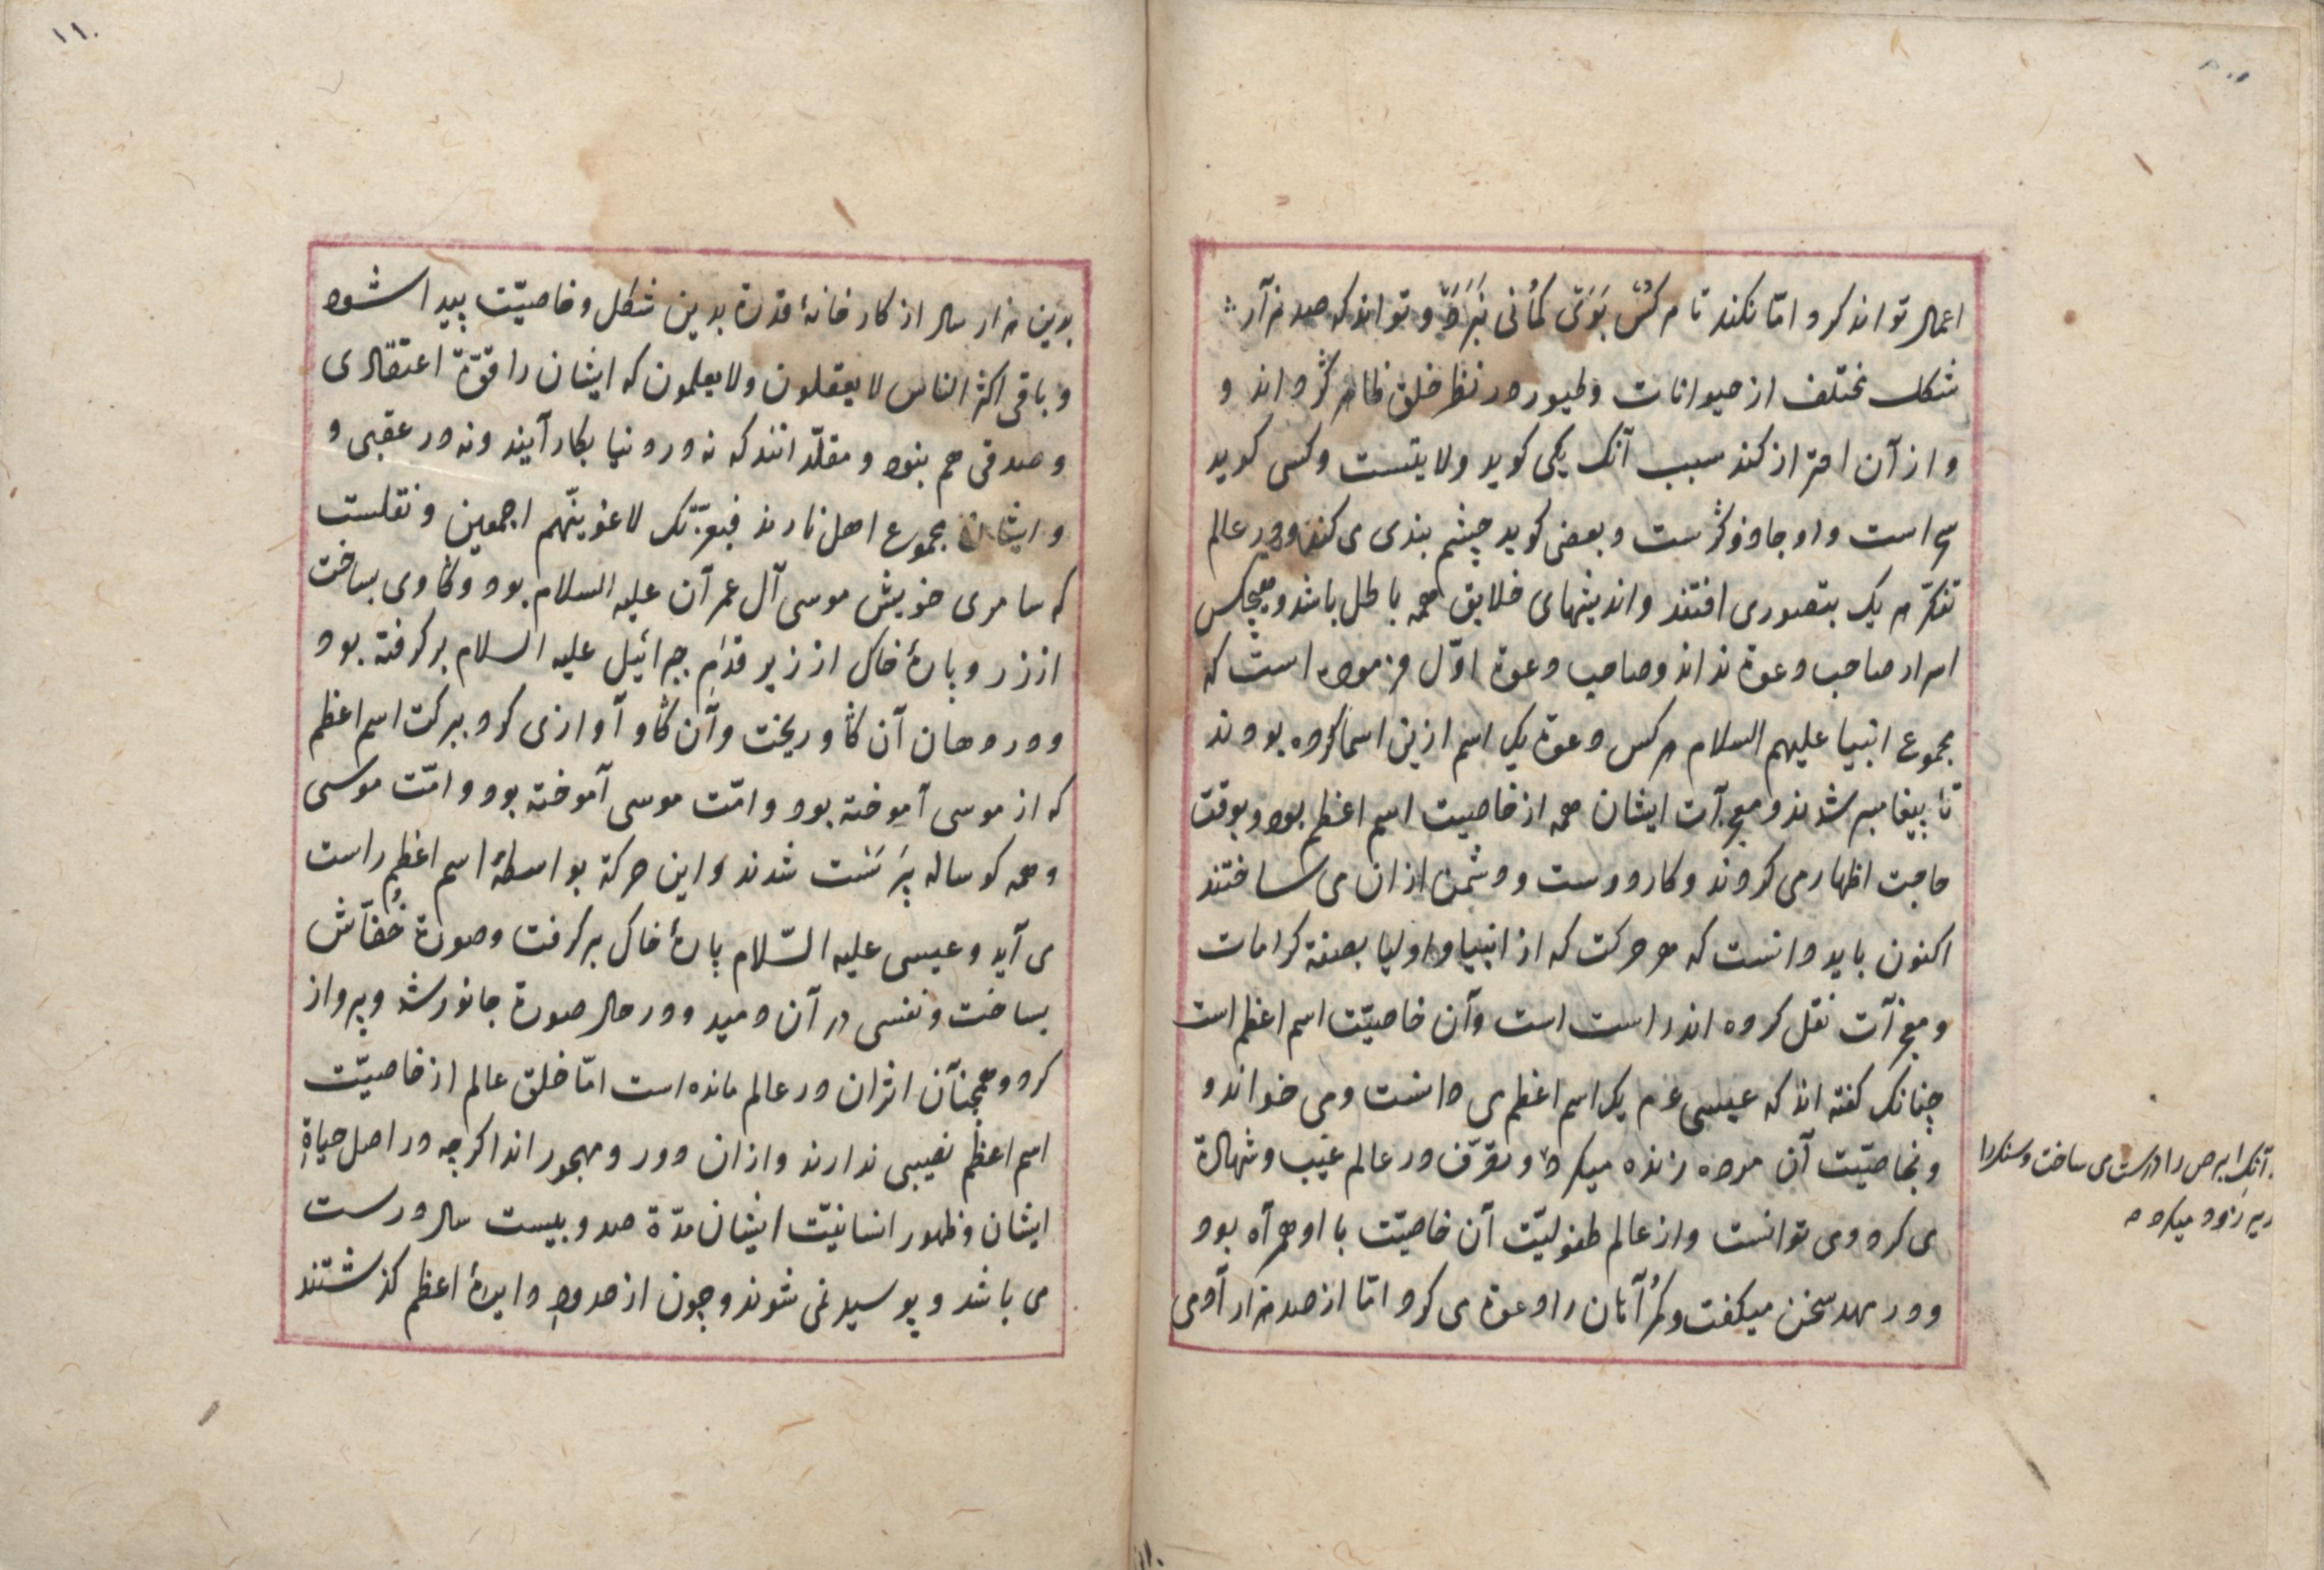 اعمال تواند کرد امّا نکند تا هرکسْ بَوَیْ کمٔانی نَبَرَدْ و تواند که صد هزآر
شکل مختلف از حیوانات و طیور در نظر خلق ظاهر کرداند و
و از آن احتراز کند سبب آنک یکی کوید ولایتست و کسی کوید
سحر است و او جادوکرست و بعضی کوید چشم بندی می کند و در عالم
تفکّر هر یک بتصوری افتند و اندیشهای خلایق همه باطل باشد و هیچکس
اسرار صاحب دعوة نداند و صاحب دعوة اوّل فرموده است که
مجموع انبیا علیهم السلام هرکس دعوة یک اسم ازین اسما کرده بودند
تا پیغامبر شدند و معجزآت ایشان همه از خاصیت اسم اعظم بود و بوقت
حاجت اظهار می کردند و کار دوست و دشمن ازان می ساختند
اکنون باید دانست که هر حرکت که از انبیا و اولیا بصفة کرامات
و معجزآت نقل کرده اند راست است و آن خاصیّت اسم اعظم است
چنانک کفته اند که عیسی عم یک اسم اعظم می دانست و می خواند و
و بخاصیّت آن مرده زنده میکرد و تصرّف در عالم غیب و شهادة
می کرد و می توانست و از عالم طفولیّت آن خاصیّت با او همرآه بود
و در مهد سخن میکفت و را دعوة می کرد امّا از صد هزار آدمی
آنک ابرص را درست می ساخت و سنکرا
زر میکرد
١١٠
بدین هزار سال از کارخانهٔ قدرة بدین شکل و خاصیّت پیدا شود
و باقی اکثر الناس لا یعقلون و لا یعلمون که ایشان را قوّة اعتقادی
و صدقی هم بنود و مقلّد انند که نه در دنیا بکار آیند و نه در عقبی و
و ایشان مجموع اهل نارند فبعزّتک لاغوینّهم اجمعین و نقلست
که سامری خویش موسی آل عمرآن علیه السلام بود و کاوی بساخت
از زر و پارهٔ خاک از زیر قدم جبرائیل علیه السلام برکرفته بود
و در دهان آن کاو ریخت و آن کاو آوازی کرد ببرکت اسم اعظم
که از موسی آموخته بود و امّت موسی آموخته بود و امّت موسی
و همه کوساله پَرَسْت شدند و این حرکة بواسطهٔ اسم اعظم راست
می آید و عیسی علیه السّلام پارهٔ خاک برکرفت و صورة خُفّاش
بساخت و نفسی در آن دمید و در حال صورة جانور شد و پرواز
کرد و همچنآن اثرآن در عالم مانده است امّا خلق عالم از خاصیّت
اسم اعظم نصیبی ندارند و ازان دور و مهجور اند اکرچه در اصل حیاةِ
ایشان و ظهور انسانیّت ایشان مدّة صد و بیست سال درست
می باشد و پوسید نمی شوند و چون از حدودِ دایرهٔ اعظم کذشتند